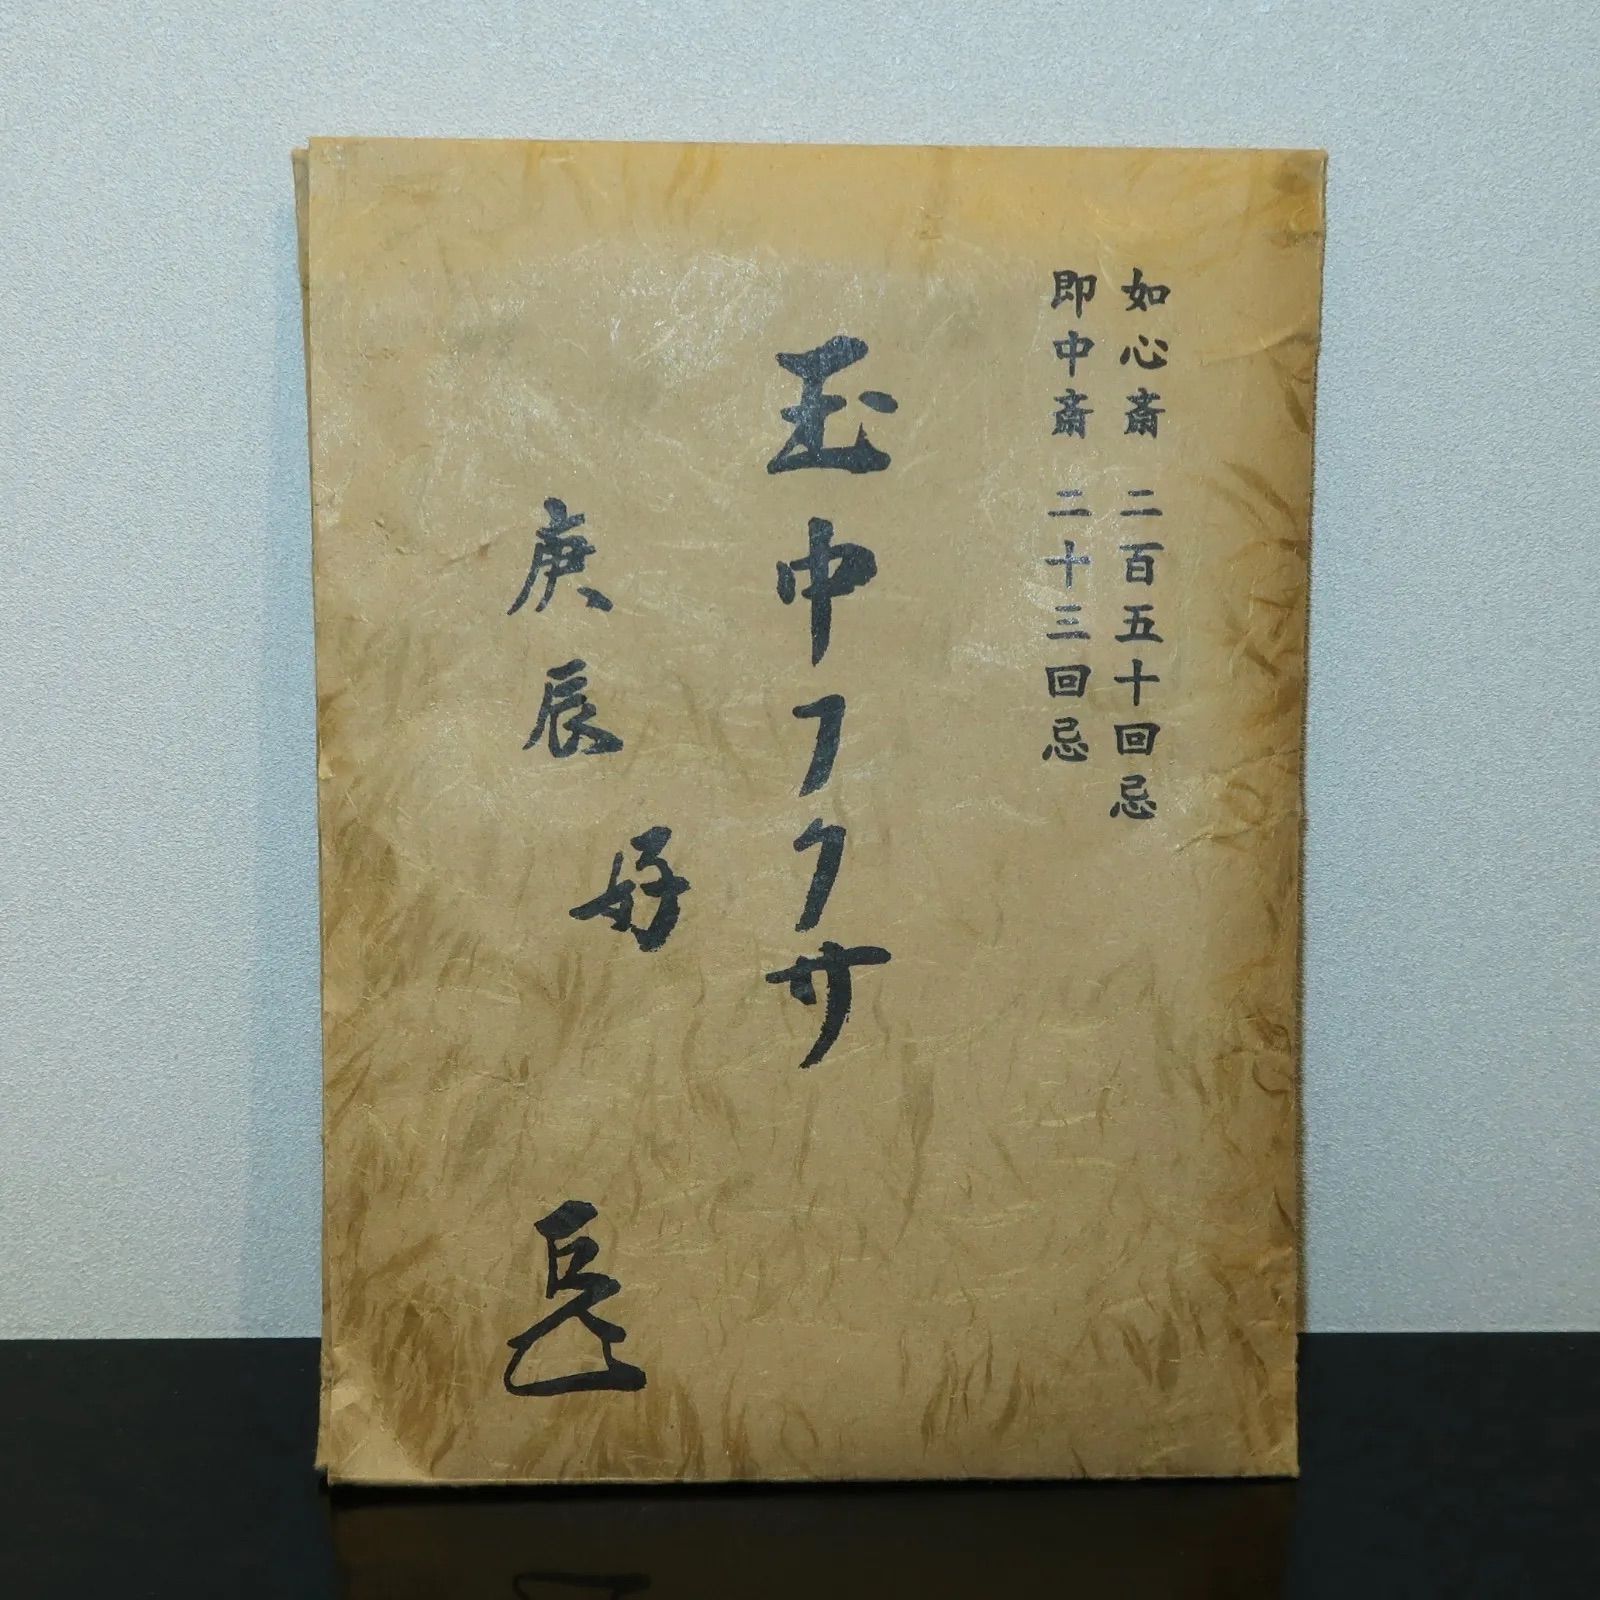 如心斎 二百五十回忌
即中斎 二十三回忌
玉中フクサ
庚辰
好